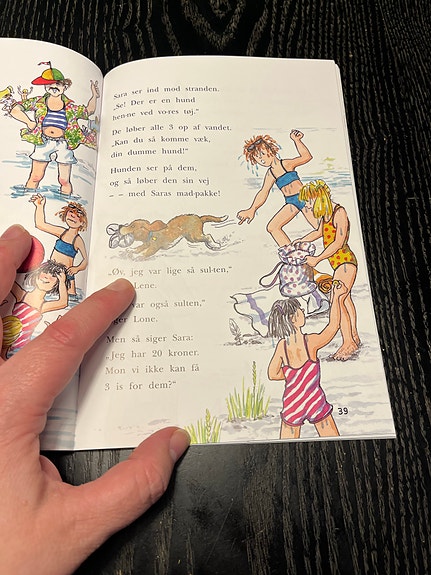 Sara ser ind mod stranden.
„Se! Der er en hund
hen·ne ved vo·res tøj.”
De løber alle 3 op af vandet.
„Kan du så komme væk,
din dumme hund!”
Hunden ser på dem,
og så løber den sin vej
– – med Saras mad·pakke!
„Øv, jeg var lige så sul·ten,”
Lene.
var også sulten,”
Lone.
Men så siger Sara:
„Jeg har 20 kroner.
Mon vi ikke kan få
3 is for dem?”
39